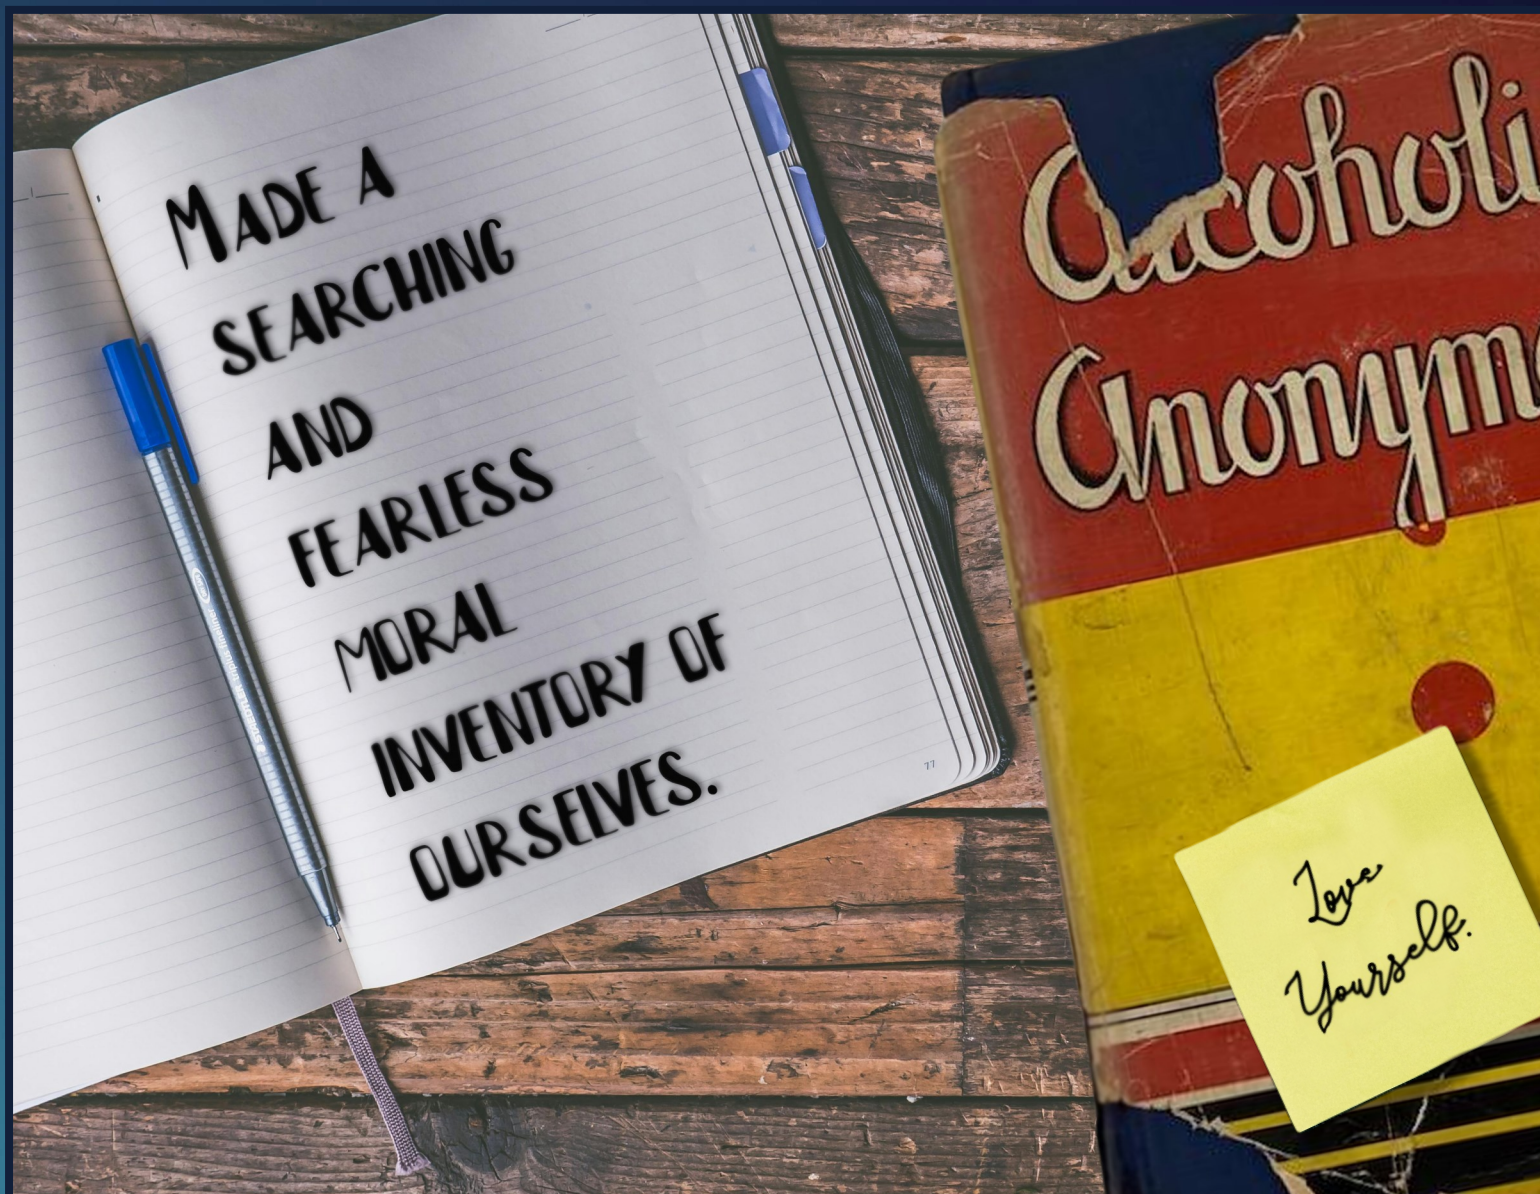 MADE A
SEARCHING
AND
FEARLESS
MORAL
INVENTORY OF
OURSELVES.
77
Anonym
Love
Yourself.